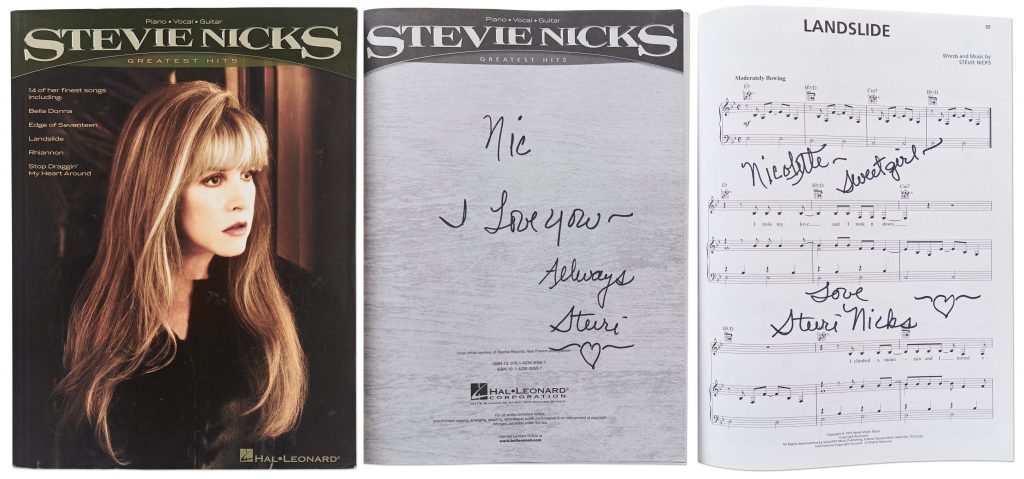 Piano • Vocal • Guitar
STEVIE NICKS
GREATEST HITS
14 of her finest songs
including:
Bella Donna
Edge of Seventeen
Landslide
Rhiannon
Stop Draggin'
My Heart Around
HAL•LEONARD®
Piano • Vocal • Guitar
STEVIE NICKS
GREATEST HITS
Nic
I Love you~
Always
Stevi
Cover photo courtesy of Reprise Records, Neal Preston photographer
HAL•LEONARD®
CORPORATION
Visit Hal Leonard Online at
www.halleonard.com
LANDSLIDE
55
Words and Music by
STEVIE NICKS
Moderately flowing
E♭ B♭/D Cm7 B♭/D
mf
Nicolette~
Sweetgirl~
E♭ B♭/D Cm7
I took my love and I took it down
Love
Stevi Nicks
B♭/D E♭
I climbed a moun - tain and I turned